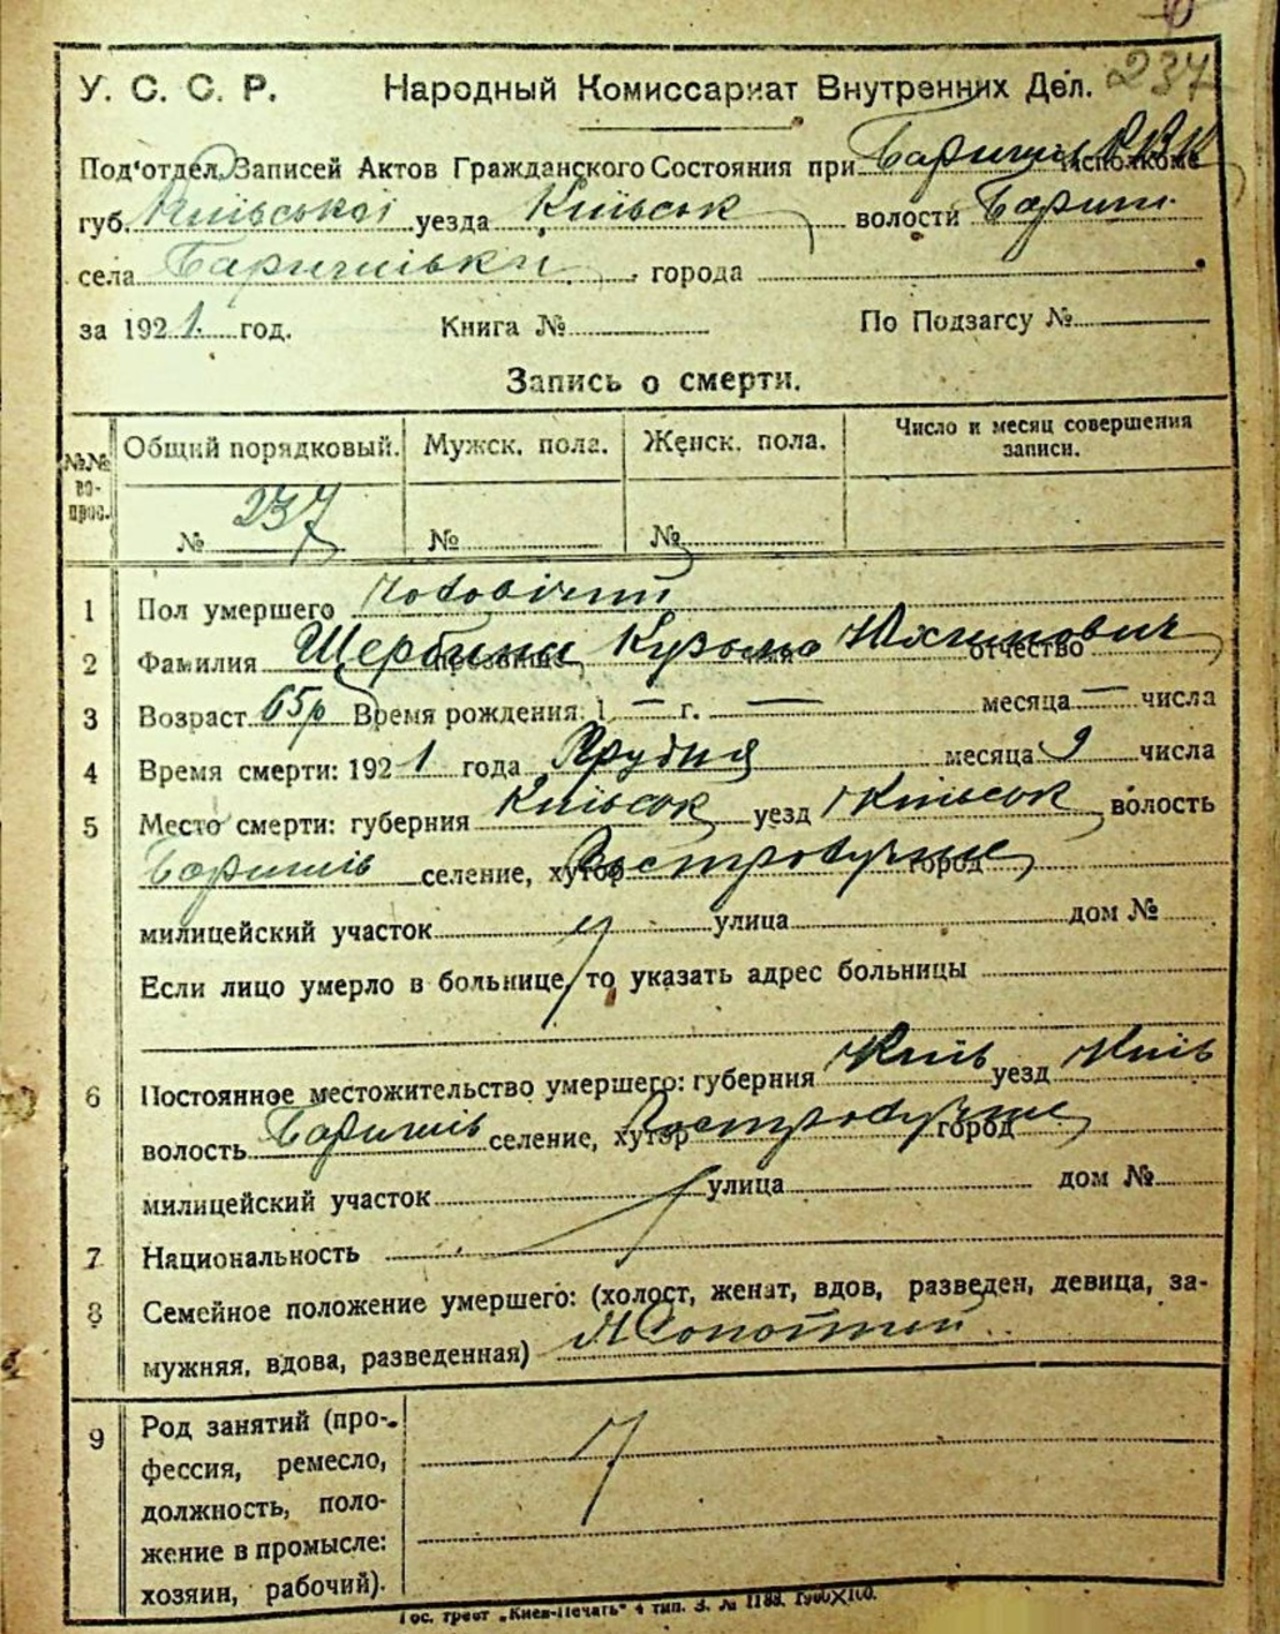 237
У. С. С. Р. Народный Комиссариат Внутренних Дел.
Под'отдел Записей Актов Гражданского Состояния при Баришів РВК Исполкоме
губ. Київської уезда Київськ волости Бориш.
села Баришівки города
за 1921. год. Книга № По Подзагсу №
Запись о смерти.
№№ во-прос. Общий порядковый. Мужск. пола. Женск. пола. Число и месяц совершения записи.
№ 237 № №
1 Пол умершего Чоловічий
2 Фамилия Щербина прозвище Кузьма имя Юхимович отчество
3 Возраст 65р Время рождения: 1 — г. — месяца — числа
4 Время смерти: 1921 года Грудня месяца 9 числа
5 Место смерти: губерния Київськ уезд Київськ волость
Баришів селение, хутор город
милицейский участок улица дом №
Если лицо умерло в больнице, то указать адрес больницы
6 Постоянное местожительство умершего: губерния Київ уезд Київ
волость Баришів селение, хутор город
милицейский участок улица дом №
7 Национальность
8 Семейное положение умершего: (холост, женат, вдов, разведен, девица, за-
мужняя, вдова, разведенная)
9 Род занятий (про-
фессия, ремесло,
должность, поло-
жение в промысле:
хозяин, рабочий).
Гос. трест „Киев-Печать" 4 тип. З. № 1188.